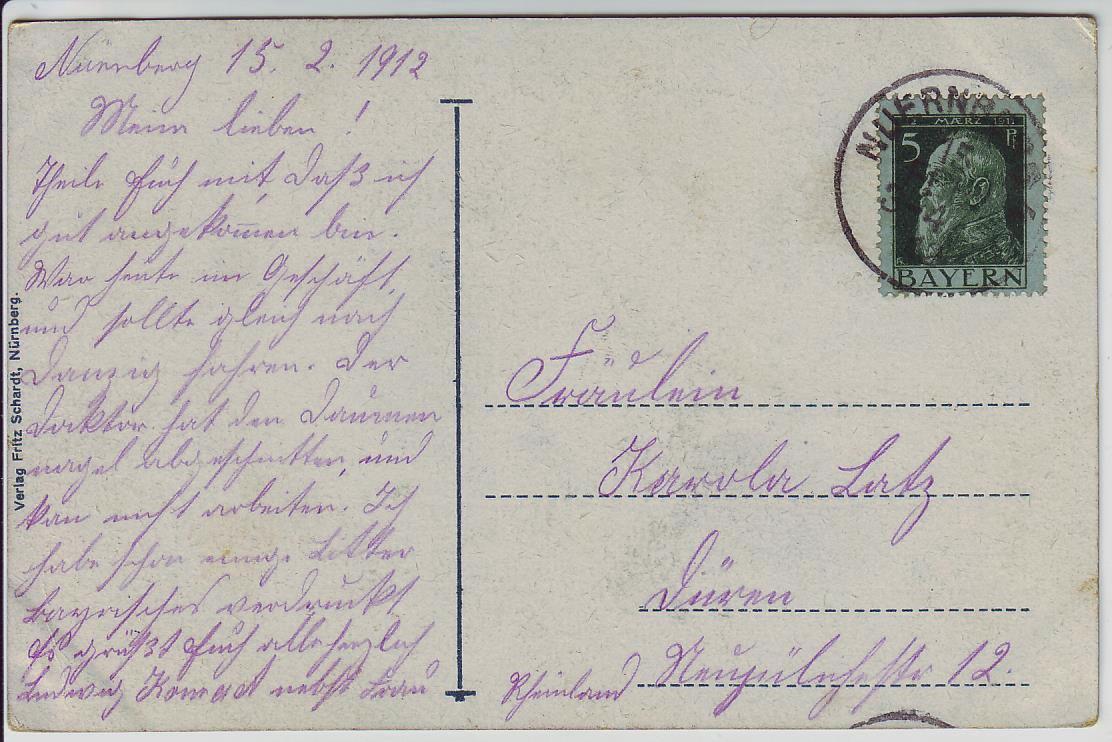 Nürnberg 15. 2. 1912
Meine lieben!
Theile Euch mit, daß ich
gut angekom̅en bin.
War heute im Geschäft,
und sollte gleich nach
Danzig fahren. Der
Doktor hat den Daumen
nagel abgeschnitten, und
kan nicht arbeiten. Ich
habe schon einige Litter
bayrisches verdruckt
Es grüßt Euch alle herzlich
Ludwig Konrad nebst Frau
Verlag Fritz Schardt, Nürnberg.
NUERNB
MÆRZ 1911
5 Pf
BAYERN
Fräulein
Karola Latz
Düren
Rheinland Neuzülicherstr 12.